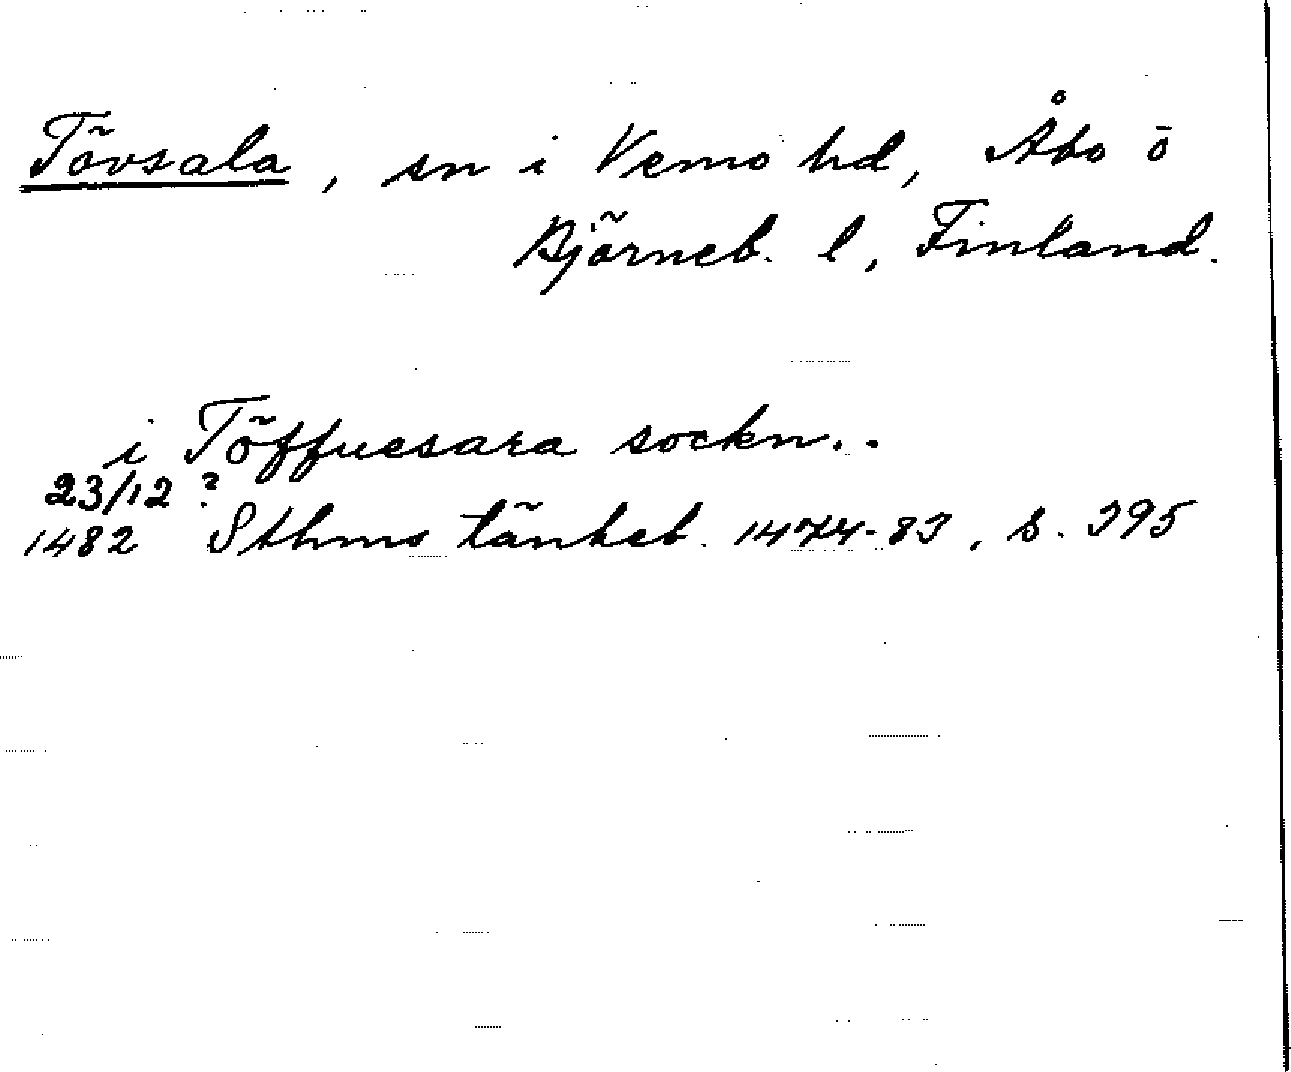 Tövsala, sn i Vemo hd, Åbo ö
Björneb. l, Finland.
i Töffuesara sockn..
23/12 ?
1482 Sthms tänkeb. 1474-83, s. 395